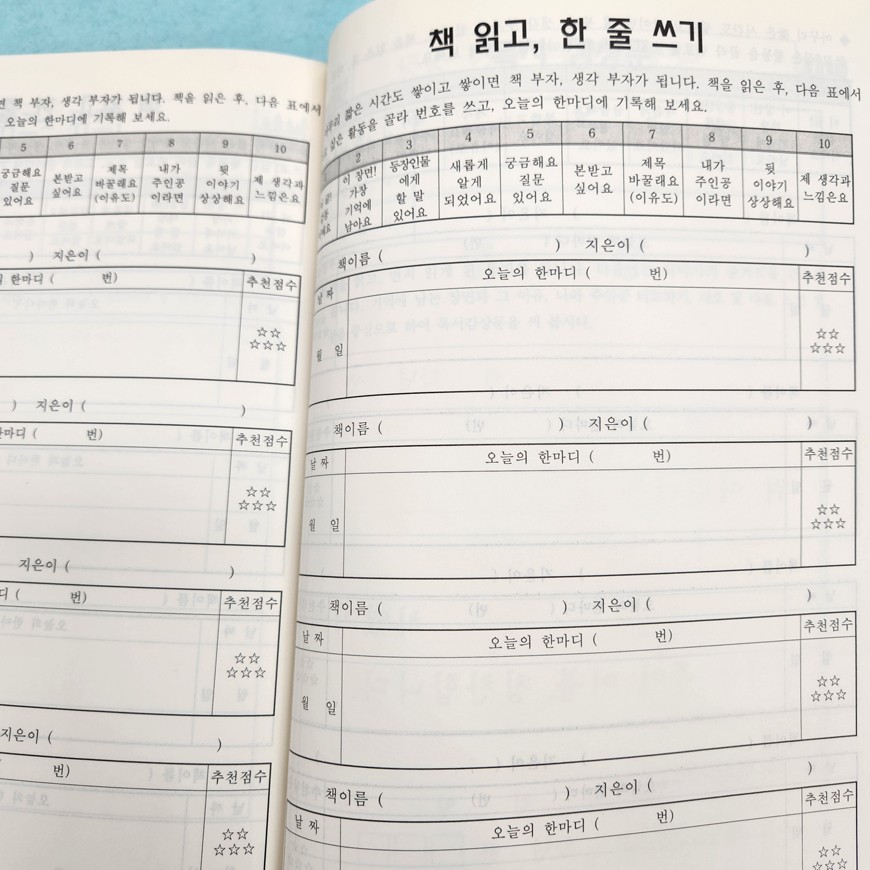 면 책 부자, 생각 부자가 됩니다. 책을 읽은 후, 다음 표에서
오늘의 한마디에 기록해 보세요.
5 6 7 8 9 10
궁금해요 질문 있어요
본받고 싶어요
제목 바꿀래요 (이유도)
내가 주인공 이라면
뒷 이야기 상상해요
제 생각과 느낌은요
) 지은이 ( )
한마디 ( 번) 추천점수
☆☆
☆☆☆
) 지은이 ( )
한마디 ( 번) 추천점수
☆☆
☆☆☆
지은이 ( )
디 ( 번) 추천점수
☆☆
☆☆☆
지은이 ( )
( 번) 추천점수
☆☆
☆☆☆
책 읽고, 한 줄 쓰기
짧은 시간도 쌓이고 쌓이면 책 부자, 생각 부자가 됩니다. 책을 읽은 후, 다음 표에서
싶은 활동을 골라 번호를 쓰고, 오늘의 한마디에 기록해 보세요.
2 3 4 5 6 7 8 9 10
이 장면! 가장 기억에 남아요
등장인물 에게 할 말 있어요
새롭게 알게 되었어요
궁금해요 질문 있어요
본받고 싶어요
제목 바꿀래요 (이유도)
내가 주인공 이라면
뒷 이야기 상상해요
제 생각과 느낌은요
책이름 ( ) 지은이 ( )
날짜 오늘의 한마디 ( 번) 추천점수
월 일
☆☆
☆☆☆
책이름 ( ) 지은이 ( )
날짜 오늘의 한마디 ( 번) 추천점수
월 일
☆☆
☆☆☆
책이름 ( ) 지은이 ( )
날짜 오늘의 한마디 ( 번) 추천점수
월 일
☆☆
☆☆☆
책이름 ( ) 지은이 ( )
날짜 오늘의 한마디 ( 번) 추천점수
☆☆
☆☆☆